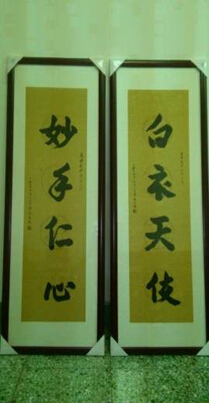 白衣天使
妙手仁心